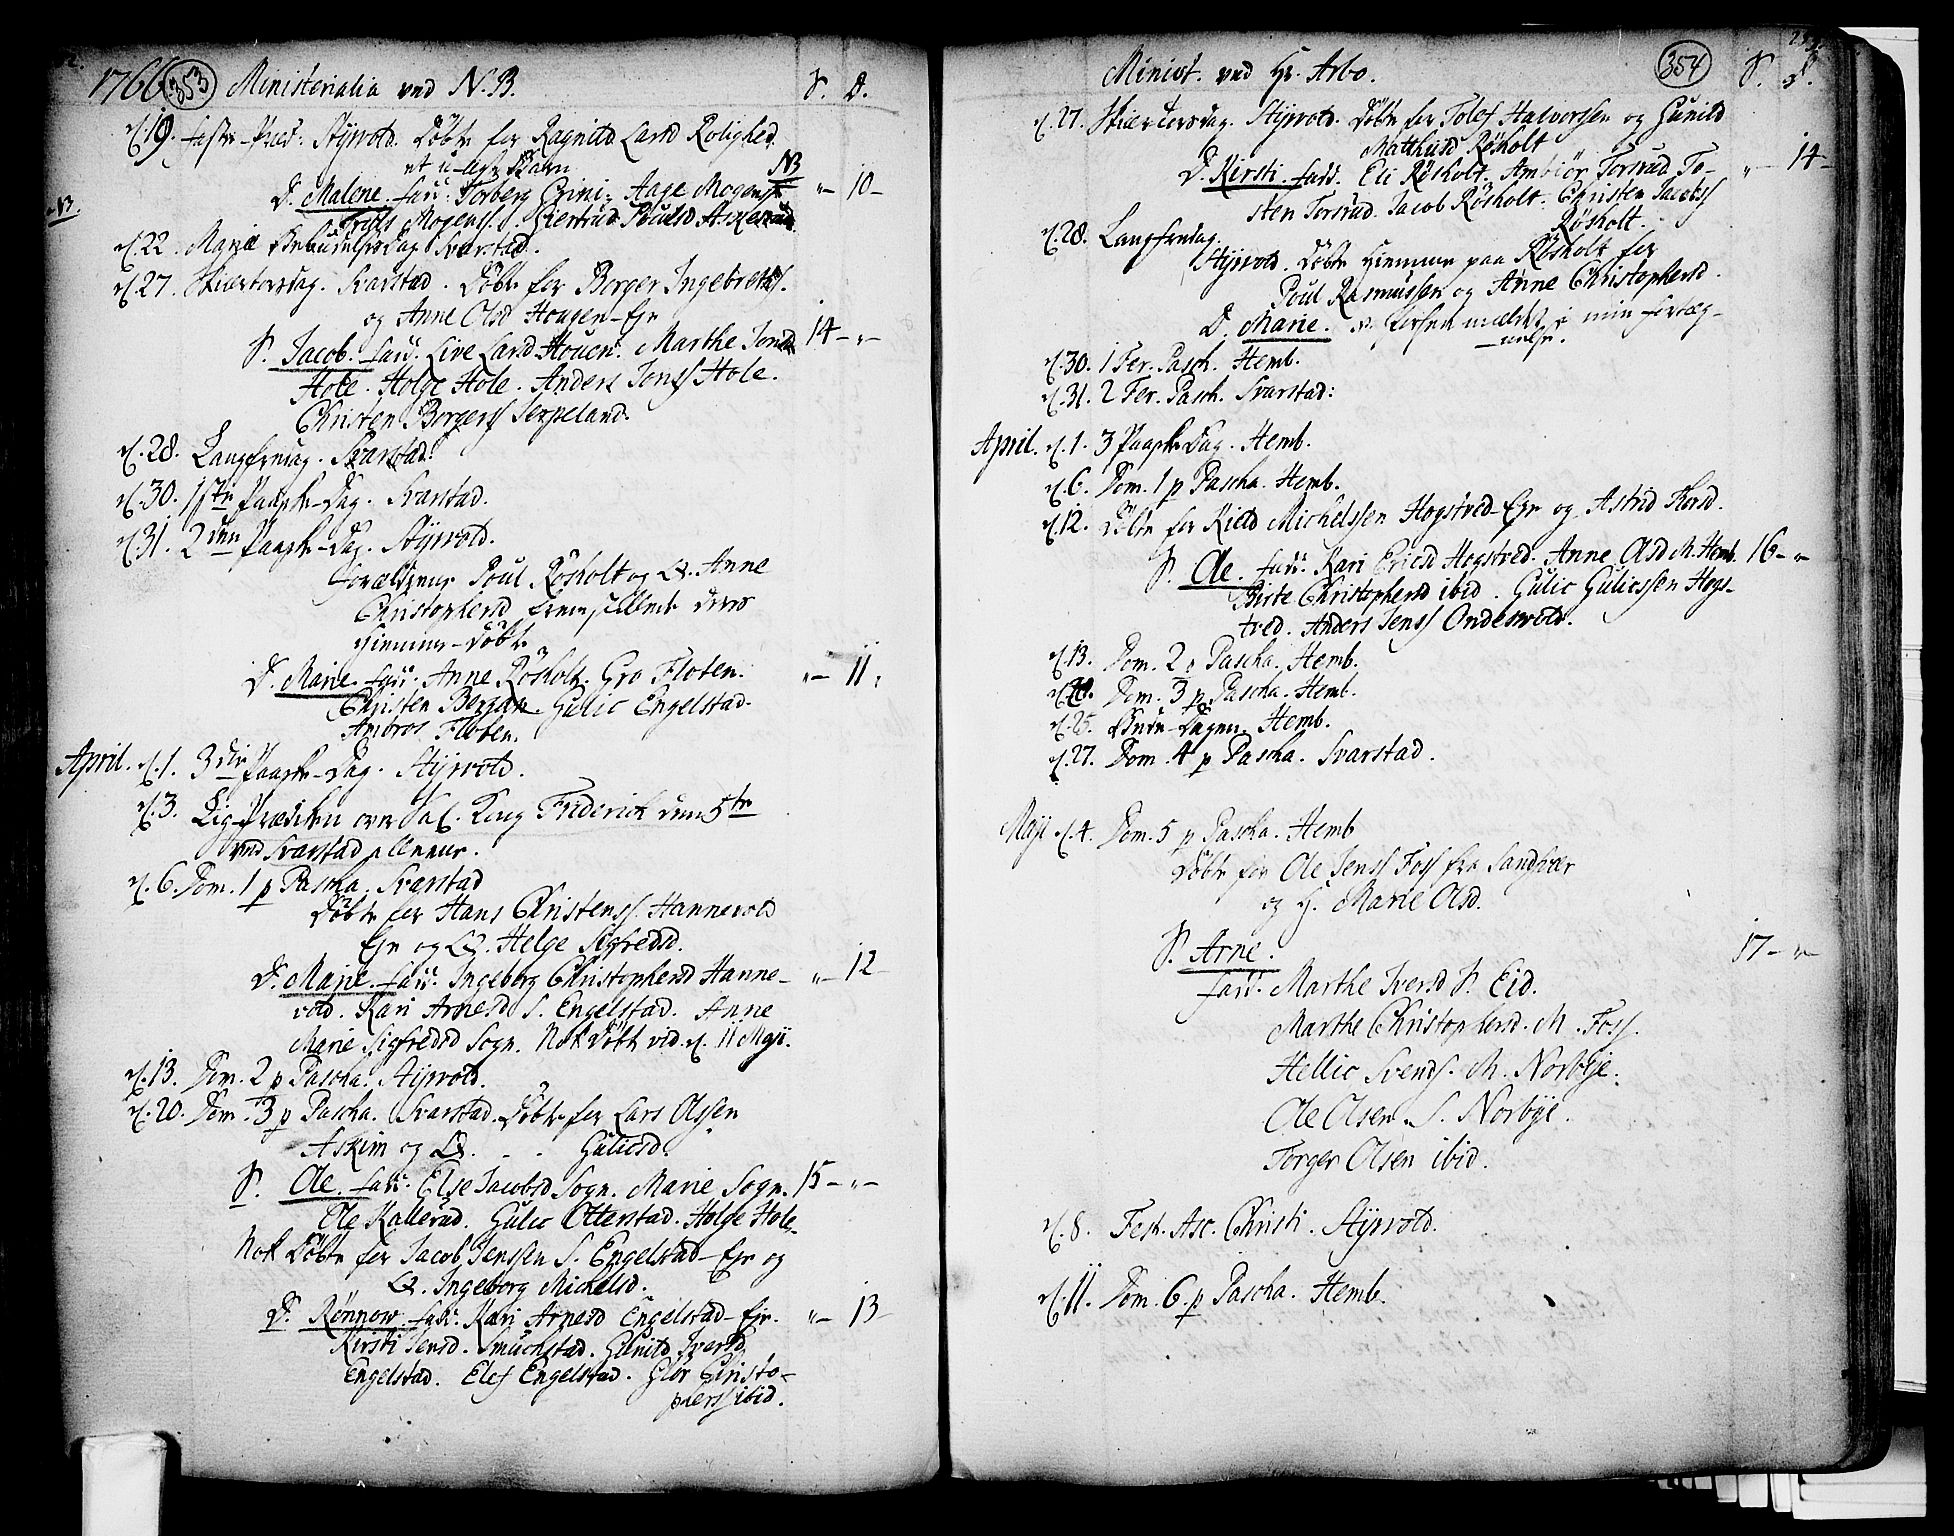 1766 353 Ministerialia ved N.B. S. D.
d. 19. faste-Præd: Styrvold. Døbt for Ragnild Larsd Rolighed
et u-ægte Barn NB
D. Malene. fadd: Torberg Grini, Aage Mogenss „ – 10 –
NB
Friis Mogenss. Giertrud Poulsd Askerud
d. 22. Mariæ Bebudelses Dag Svarstad.
d. 27. Skiertorsdag. Svarstad. Døbt for Borger Ingebretss.
og Anne Olsd Hougen-Eje
S. Jacob. fadd. Live Larsd Houen. Marthe Jonsd 14 – „ –
Hole. Holge Hole. Anders Jonss Hole.
Christen Borgerss Serpeland.
d. 28. Langfredag. Svarstad.
d. 30. 1ste Paaske-Dag. Svarstad.
d. 31. 2den Paaske-Dag. Styrvold.
Forældrene Poul Røsholt og Q. Anne
Christophersd fremstillede deres
Hiemme-Døbte
D. Marie. fadd. Anne Røsholt. Gro Floten. „ – 11 „
Christen Bergan. Gulic Engelstad.
Ambros Floten.
April. d. 1. 3die Paaske-Dag. Styrvold.
d. 3. Lig-Prædiken over Sal. Kong Friderich den 5te
ved Svarstad allene.
d. 6. Dom. 1 p Pascha. Svarstad
Døbt for Hans Christenss. Hannevold
Eje og Q. Helge Sigfredsd.
D. Marie. fadd. Ingeborg Christophersd Hanne- „ – 12 –
vold. Kari Arnesd S. Engelstad. Anne
Marie Sigfredsd Sogn. Nok Døbt vid. d. 11 Maji.
d. 13. Dom. 2 p Pascha. Styrvold.
d. 20. Dom. 3 p Pascha. Svarstad. Døbt for Lars Olssen
Askim og Q. - - Gulicsd.
S. Ole. fadd. Else Jacobsd Sogn. Marie Sogn. 15 – „ –
Ole Kallerud. Gulic Otterstad. Holge Hole.
Nok Døbt for Jacob Jenssen S. Engelstad-Eje og
Q. Ingeborg Michelsd.
D. Rønnow. fadd. Kari Arnesd Engelstad-Eje. „ – 13
Kirsti Jensd. Smuchstad. Gunild Iversd
Engelstad. Elef Engelstad. Glor Christo-
pherss ibid.
Minist. ved Hr. Arbo. 354 S. D.
d. 27. Skiertorsdag. Styrvold. Døbt for Tolef Halvorssen og Gunild
Matthisd Røsholt
D. Kirsti. fadd. Eli Røsholt. Ambiør Torsrud. To- „ – 14 –
sten Torsrud. Jacob Røsholt. Christen Jacobss
Røsholt.
d. 28. Langfredag.
Styrvold. Døbt Hiemme paa Røsholt for
Poul Rasmussen og Anne Christophersd.
D. Marie. min forteg-
nelse.
d. 30. 1 Fer. Pasch. Hemb.
d. 31. 2 Fer. Pasch. Svarstad:
April. d. 1. 3 Paaske Dag. Hemb.
d. 6. Dom. 1 p Pascha. Hemb.
d. 12. Døbt for Kield Michelssen Hogstved-Eje og Astrid Thorsd.
S. Ole. fadd. Kari Ericsd Hogstved. Anne Olsd M. Hemb. 16 – „
Birte Christophersd ibid. Gulic Gulicssen Hogs-
tved. Anders Jenss Ondesvold.
d. 13. Dom. 2 p Pascha. Hemb.
d. 20. Dom. 3 p Pascha. Hemb.
d. 25. Bede-Dagen. Hemb.
d. 27. Dom. 4 p Pascha. Svarstad.
Maji d. 4. Dom. 5 p Pascha. Hemb
Døbt for Ole Jenss Foss fra Sandsvær
og H. Marie Olsd.
S. Arne. 17 – „ –
fadd. Marthe Iversd S. Eid.
Marthe Christophersd. M. Foss.
Hellic Svends. M. Norbye.
Ole Olsen S. Norbye.
Torger Olsen ibid.
d. 8. Fest. Asc. Christi. Styrvold.
d. 11. Dom. 6. p Pascha. Hemb.